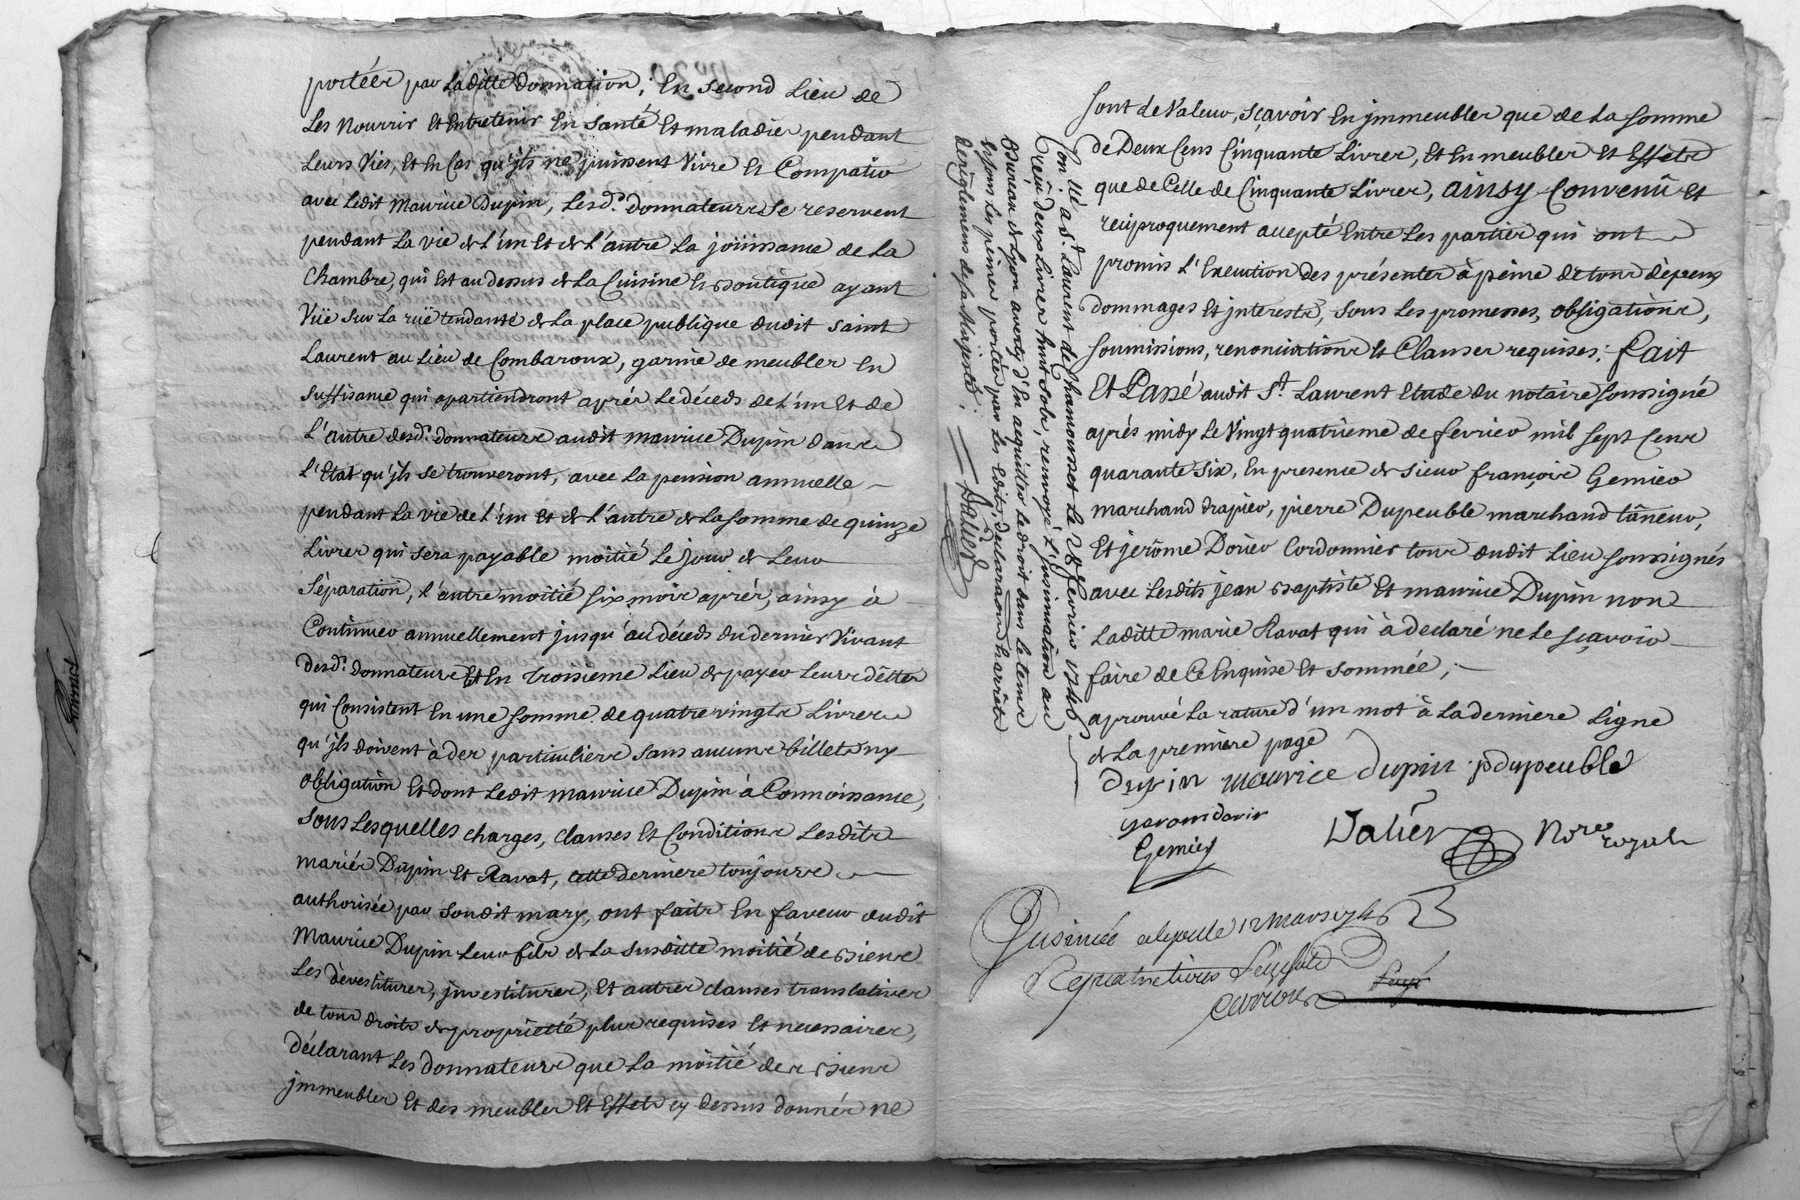 portéés par Laditte donnation; En second Lieu de
Les Nourrir Et Entretenir En Santé Et maladies pendant
Leurs Vies, Et En Cas qu'jls ne puissent Vivre Et Compatir
avec Ledit Maurice Dupin, Lesd.s donnateurs Se reservent
pendant La vie de L'un Et de L'autre La joüissance de La
Chambre, qui Est au dessus de La Cuisine Et Boutique ayant
Vüe Sur La rüe tendante de La place publique dudit saint
Laurent au Lieu de Combaroux, garnie de meubles En
Suffisance qui apartiendront aprés Le décéds de L'un Et de
L'autre desd.s donnateurs audit maurice Dupin dans
L'Etat qu'jls se trouveront, avec La pension annuelle
pendant La vie de L'un Et de L'autre de La Somme de quinze
Livres qui sera payable moitié Le Jour de Leur
Séparation, L'autre moitié Six mois aprés, ainsy à
Continuer annuellement jusqu'au décéds du dernier Vivant
desd.s donnateurs Et En troisieme Lieu de payer Leurs dêttes
qui Consistent En une Somme de quatre vingts Livres
qu'jls doivent à des particuliers sans aucuns billets ny
obligation Et dont Ledit maurice Dupin à Connoissance,
Sous Lesquelles charges, clauses Et Conditions Lesdits
mariés Dupin Et Ravat, cette derniere toujours
authorisée par Sondit mary, ont faits En faveur dudit
Maurice Dupin Leur fils de La susditte moitié de Biens
Les dévestitures, jnvestitures, Et autres clauses translatives
de tous droits de proprietté plus requises Et necessaires,
Déclarant Les donnateurs que La moitié des Biens
jmmeubles Et des meubles Et Effets cy dessus donnés ne
Con.lé a S.t Laurent de Chamousset Le 28 fevrier 1746
reçû deux Livres huit Sols, renvoyé L'jnsinuation au
Bureau de Lyon averty d'En acquitter Le droit dans Le tems
Et sous Les peines portées par Les Edits, déclarations Et arrêts
de reglemens de Sa Majesté; Dalier
Sont de Valeur, sçavoir En jmmeubles que de La Somme
de Deux Cens Cinquante Livres, Et En meubles Et Effets
que de Celle de Cinquante Livres, ainsy Convenû Et
reciproquement accepté Entre Les parties qui ont
promis L'Execution des présentes à peine de tous dépens
dommages Et jnterests, sous Les promesses, obligations,
Soumissions, renonciations Et Clauses requises; fait
Et Passé audit S.t Laurent Etude du notaire Soussigné
aprés midy Le Vingt quatrieme de fevrier mil Sept Cens
quarante Six, En presence de Sieur françois Gemier
marchand drapier, pierre Dupeuble marchand tâneur,
Et jerôme Dorier Cordonnier tous dudit Lieu Soussignés
avec Lesdits jean Baptiste Et maurice Dupin non
Laditte marie Ravat qui à declaré ne Le sçavoir
faire de Ce Enquise Et Sommée;
aprouvé La rature d'un mot à La derniere Ligne
de La premiere page
Dupin maurice dupin pdupeuble
Gemier
Dalier No.re royal
Jnsinué 12 mars 1746